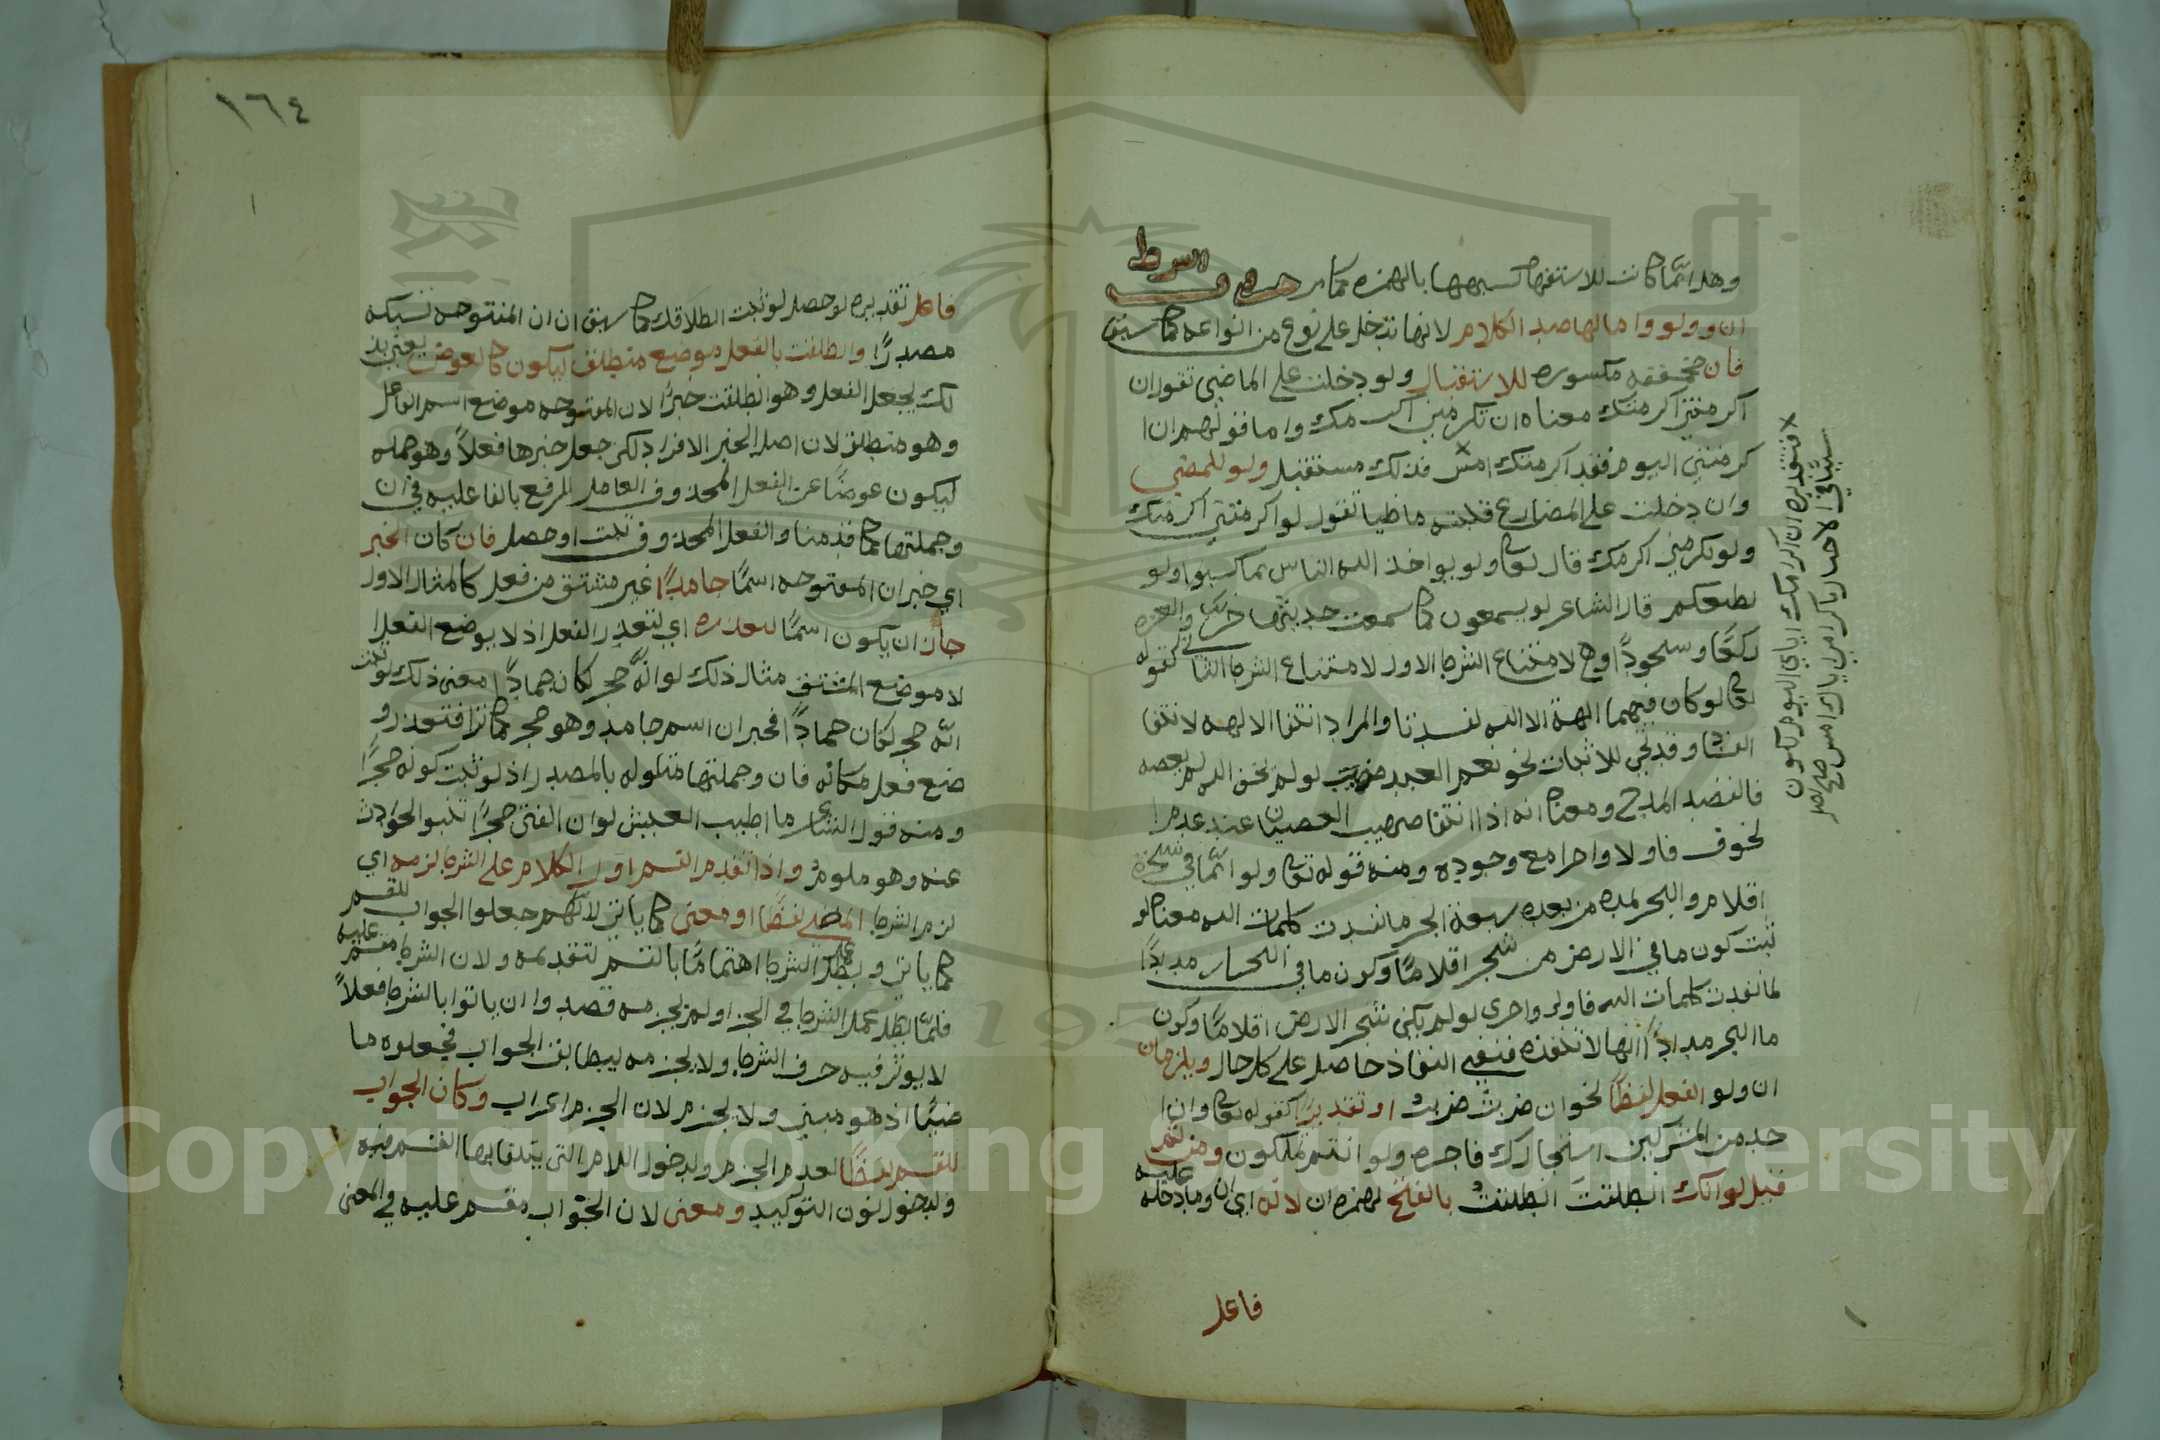 وهذا انما كانت للاستفهام لسبهها بالهمزه كما مر حروف الشرط
ان ولو واما لها صدر الكلام لانها تدخل على نوع من انواعه كما سبق
فان مخففه مكسوره للاستقبال ولو دخلت على الماضي تقول ان
اكرمتني اكرمتك معناه ان تكرمني اكرمك واما قولهم ان ا
كرمتني اليوم فقد اكرمتك امس فذلك مستقبل ولو للمضي
وان دخلت على المضارع قلبته ماضيا تقول لو اكرمتني اكرمتك
ولو تكرمني اكرمك قال تعالى ولو يواخذ الله الناس بما كسبوا ولو
يطيعكم قال الشاعر لو يسمعون كما سمعت حديثها خروا لعزه
ركعًا وسجودًا وهي لامتناع الشرط الاول لامتناع الشرط الثاني كقوله
تعالى لو كان فيهما الهة الا الله لفسدتا والمراد انتفا الالهه لانتفا
الفساد وقد تجي للاثبات نحو نعم العبد صهيب لو لم يخف الله لم يعصه
فالقصد المدح ومعناه انه اذا انتفا صهيب العصيان عند عدم ا
لخوف فاولا واحرا مع وجوده ومنه قوله تعالى ولو انما في الارض من شجرة
اقلام والبحر يمده من بعده سبعة ابحر ما نفدت كلمات الله معناه لو
ثبت كون ما في الارض من شجر اقلامًا وكون ما في البحار مدادًا
لما نفدت كلمات الله فاولى واحرى لو لم يكن شجر الارض اقلامًا وكون
ما البحر مدادًا انها لا تنفذه فنفي النفاذ حاصل على كل حال ويلزمان
ان ولو الفعل لفظًا نحو ان ضربت ضربت او تقديرًا كقوله تعالى وان ا
حد من المشركين استجارك فاجره ولو انتم تملكون ومن ثم
قيل لو انك انطلقت انطلقت بالفتح لهمزه ان لانه اي ان وما دخلت عليه
فاعل
× فتقديره ان اكرامك اياي اليوم يكون
سببًا في الاخبار باكرامي اياك امس صح اصل
١٦٤
فاعل تقديره لو حصل لو ثبت انطلاقك كما سبق ان ان المفتوحه تسبكه
مصدرًا وانطلقت بالفعل موضع منطلق ليكون كالعوض يعني بذ
لك يجعل الفعل وهو انطلقت خبرًا لان المفتوحه موضع اسم الفاعل
وهو منطلق لان اصل الخبر الافراد لكن جعل خبرها فعلاً وهو جمله
ليكون عوضًا عن الفعل المحذوف العامل الرفع بالفاعليه في ان
وجملتها كما قدمنا والفعل المحذوف ثبت او حصل فان كان الخبر
اي خبر ان المفتوحه اسمًا جامدًا غير مشتق من فعل كالمثال الاول
جاز ان يكون اسمًا لتعذره اي لتعذر الفعل اذ لا يوضع الفعل ا
لا موضع المشتق مثال ذلك لو انه حجر لكان جمادًا معنى ذلك لو ثبت
انه حجر لكان جمادًا فخبر ان اسم جامد وهو حجر كما ترا فتعذر و
ضع فعل مكانه فان وجملتها متاوله بالمصدر اذ لو ثبت كونه حجرًا
ومنه قول الشاعر ما اطيب العيش لو ان الفتى حجرًا تنبو الحوادث
عنه وهو ملموم واذا تقدم القسم اول الكلام على الشرط لزمه اي
لزم الشرط المضي لفظًا او معنى كما ياتي لانهم جعلوا الجواب للقسم
كما ياتي وبطل عمل الشرط اهتمامًا بالقسم لتقدمه ولان الشرط مقسم عليه
فلمّا بطل عمل الشرط في الجزا ولم يجزمه قصدوا ان ياتوا بالشرط فعلاً
لا يوثر فيه حرف الشرط ولا يجزمه ليطابق الجواب فجعلوه ما
ضيًا اذ هو مبني ولا يجزم لان الجزم اعراب وكان الجواب
للقسم لفظًا لعدم الجزم ولدخول اللام التي يتلقا بها القسم فيه
ولدخول نون التوكيد ومعنى لان الجواب مقسم عليه في المعنى
Copyright © King Saud University
195